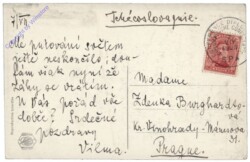 4/VII.
Tchécoslovaquie.
Mé putování světem
ještě neskončilo; dou-
fám však nyní ze
záhy se vrátím.
U Vás, pořád vše
dobře? Srdečné
pozdravy
Vilma.
Madame
Zdenka Burghardto-
vá
Kr. Vinohrady - Mánesova
Prague.